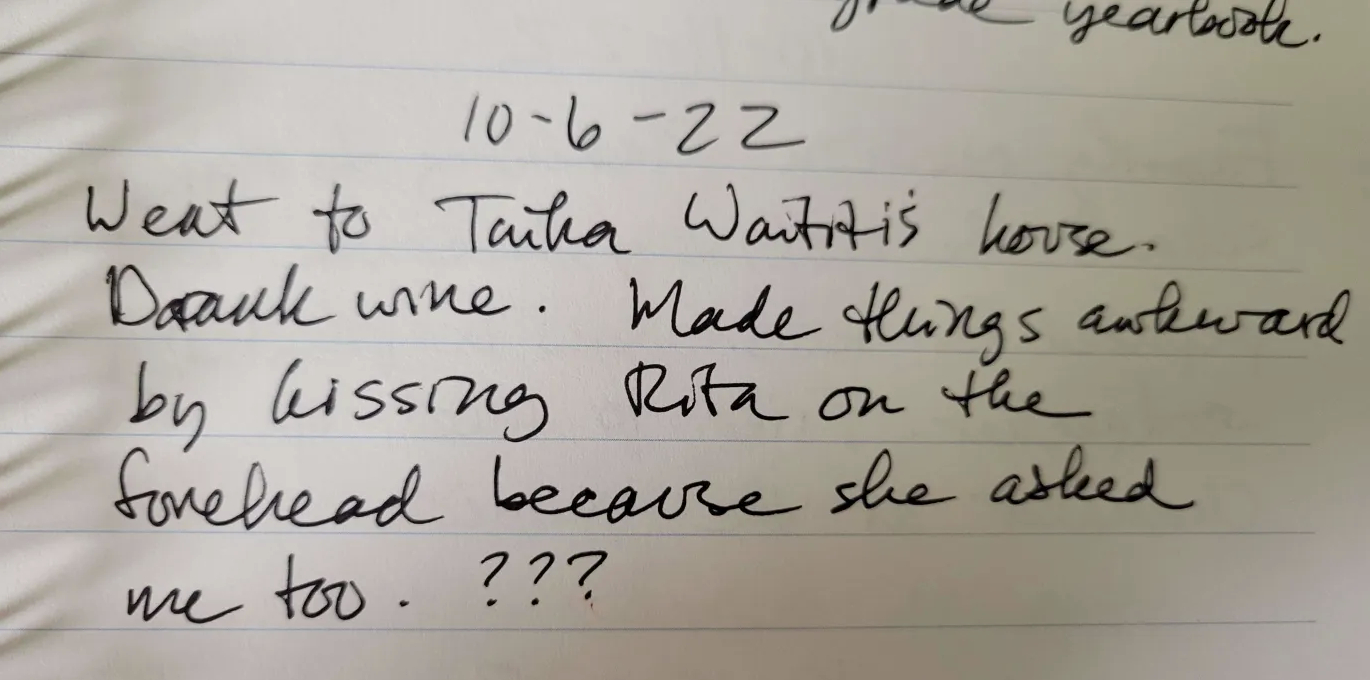 grade yearbook.
10-6-22
Went to Taika Waititi's house.
Drank wine. Made things awkward
by kissing Rita on the
forehead because she asked
me too. ???